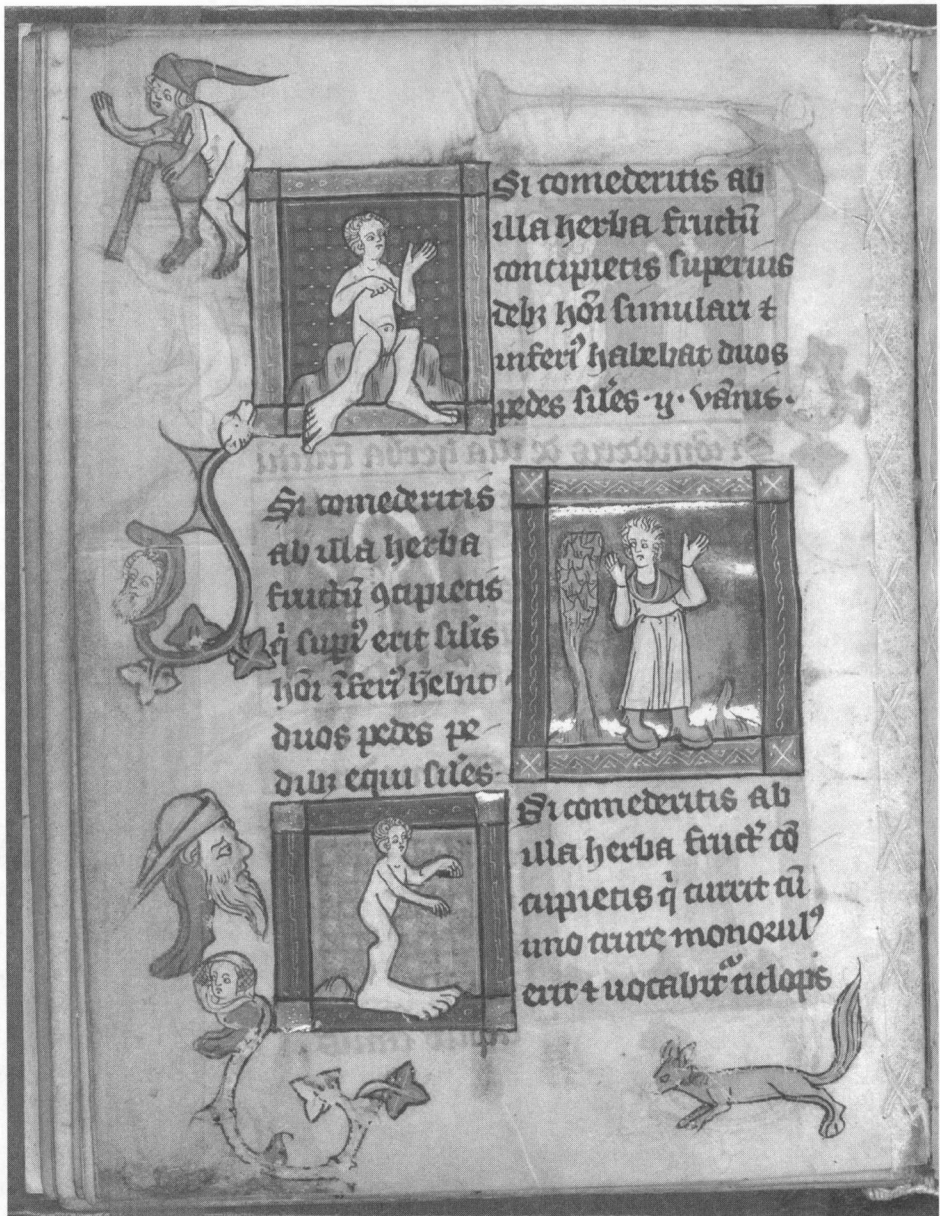 Si comederitis ab
illa herba fructū
concipietis superius
debꝫ hōi simulari ⁊
inferiꝰ habebat duos
pedes sil'es ·ij· vānis·
Si comederitis
ab illa herba
fructū ꝯcipietis
q̇ supiꝰ erit sil'is
hōi īferiꝰ hēbit
duos pedes pe-
dibꝫ equi sil'es·
Si comederitis ab
illa herba fruct' cō
cipietis q̇ currit cū
uno crure monoculꝰ
erit ⁊ uocabit̄ ciclopis